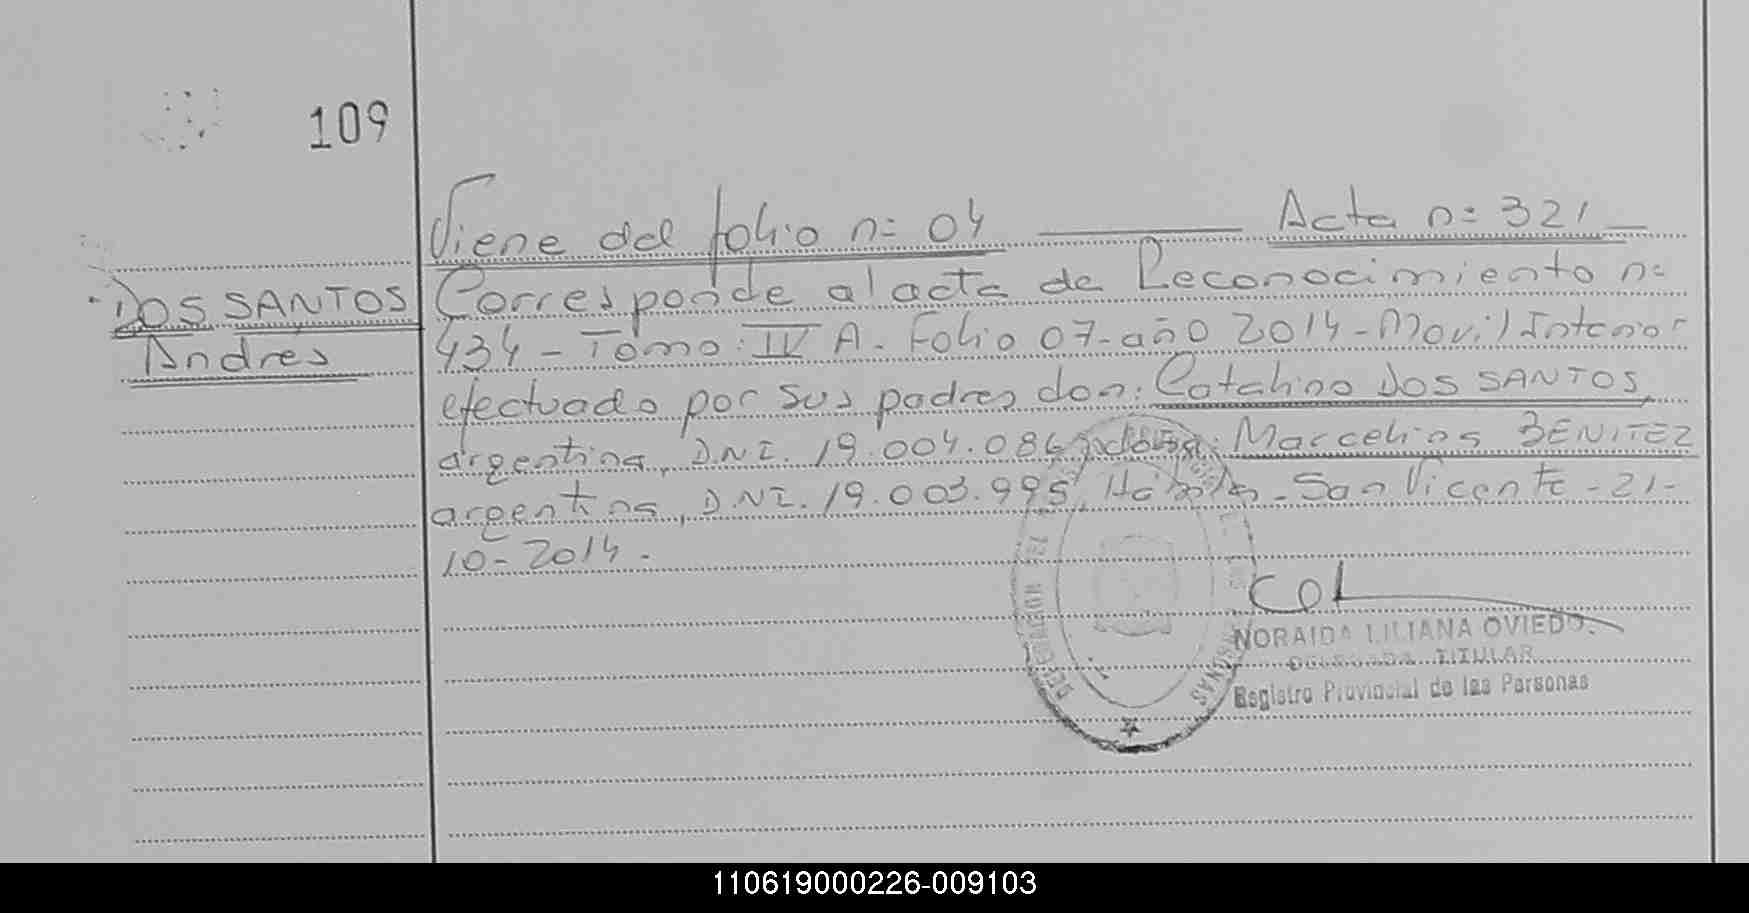 109
Viene del folio n= 04 Acta n= 321
DOS SANTOS
Andrés
Corresponde al acta de Reconocimiento n=
434 - Tomo: IV A. Folio 07-año 2014-Movil Interior
efectuado por sus padres don: Catalino DOS SANTOS,
argentina, D.N.I. 19.004.086 Marcelina BENITEZ
argentina, D.N.I. 19.003.995, San Vicente - 21-
10-2014.
NORAIDA LILIANA OVIEDO
DELEGADA TITULAR
Registro Provincial de las Personas
110619000226-009103